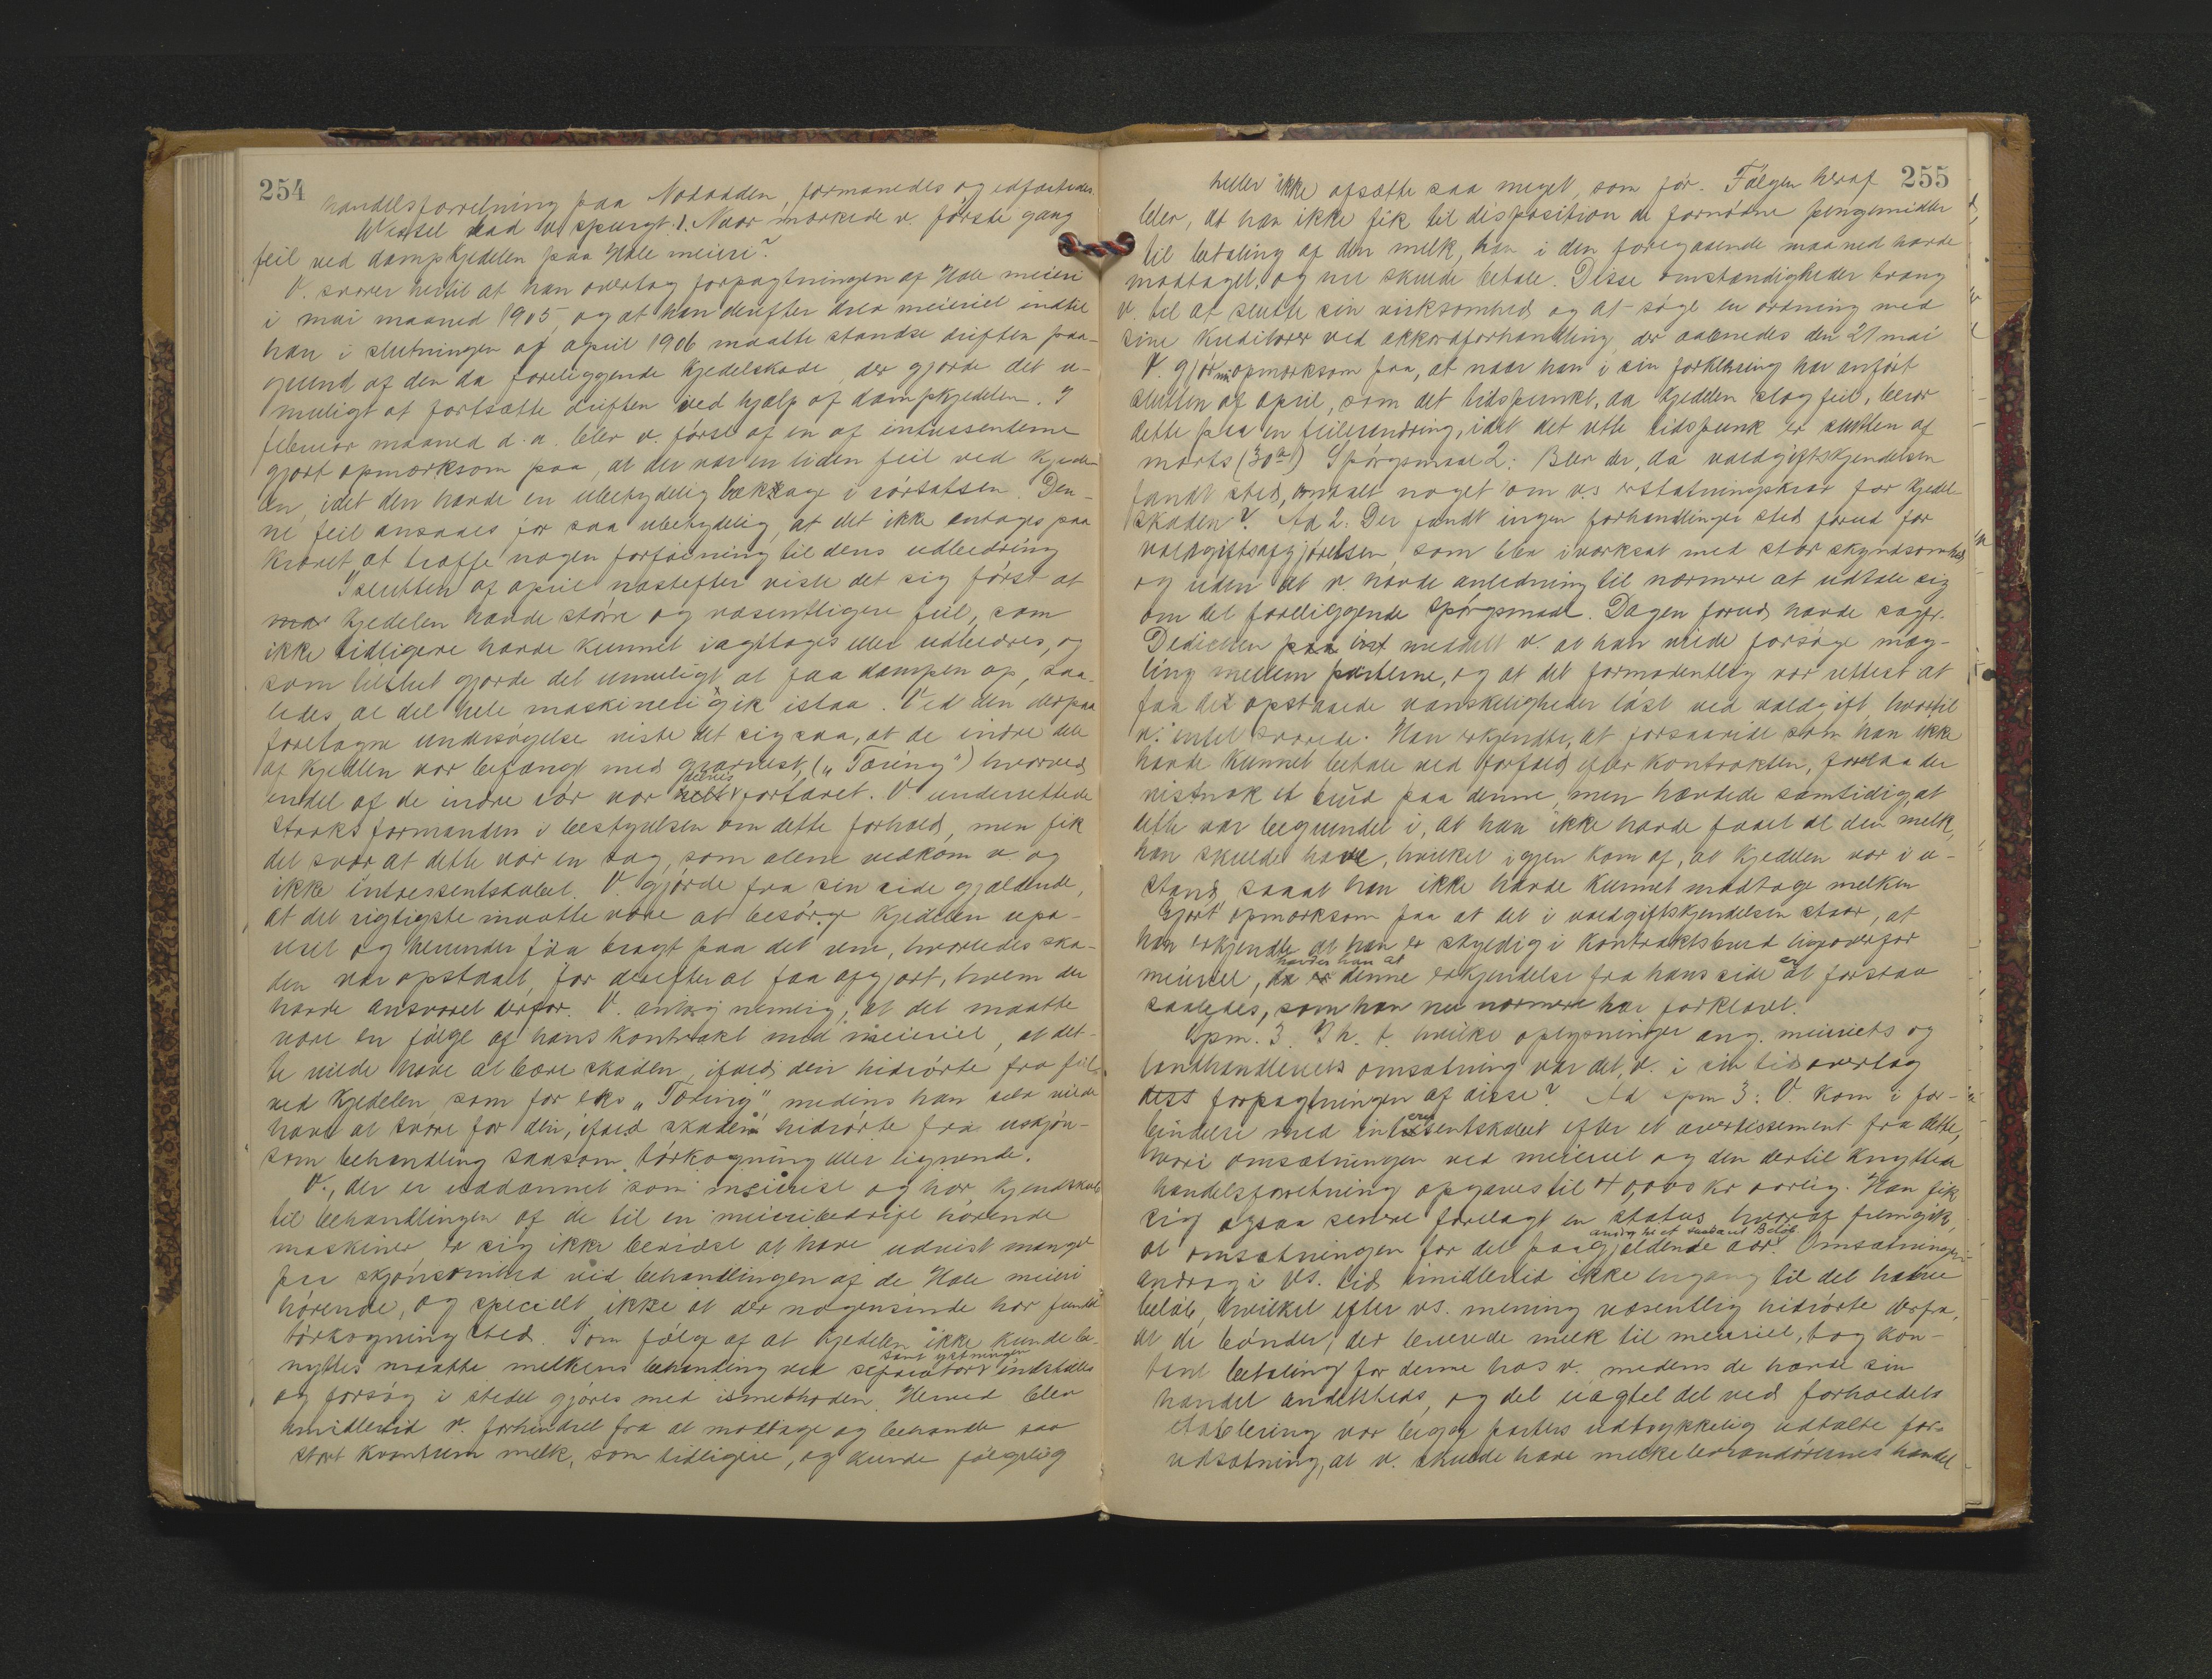 254
handelsforretning paa Notodden, formanedes og edfæstedes.
Wessel bad v. spurgt: 1. Naar mærkede v. første gang
feil ved dampkjedelen paa Hole meieri?
V. svarer hertil at han overtog forpagtningen af Hole meieri
i mai maaned 1905, og at han derefter drev meieriet indtil
han i slutningen af april 1906 maatte standse driften paa-
grund af den da foreliggende kjedelskade, der gjorde det u-
muligt at fortsætte driften ved hjælp af dampkjedelen. I
februar maaned d. a. blev v. først af en af intressenterne
gjort opmærksom paa, at der var en liden feil ved kjedel-
en, idet den havde en ubetydelig lækage i rørsatsen. Den-
ne feil ansaaes for saa ubetydelig, at det ikke antoges paa-
krævet at træffe nogen forføining til dens udbedring
I slutten af april næstefter viste det sig først at
kjedelen havde større og væsentligere feil, som
ikke tidligere havde kunnet iagttages eller udbedres, og
som tilslut gjorde det umuligt at faa dampen op, saa-
ledes at det hele maskineri gik istaa. Ved den derpaa
foretagne undersøgelse viste det sig saa, at de indre dele
af kjedlen var befængt med gravrust, („Tæring") hvorved
endel af de indre rør var delvis fortæret. V. underrettede
straks formanden i bestyrelsen om dette forhold, men fik
det svar at dette var en sag, som alene vedkom v. og
ikke intressentskabet. V. gjorde fra sin side gjældende,
at det rigtigste maatte være at besørge kjedelen repa-
reret og herunder faa bragt paa det rene, hvorledes ska-
den var opstaaet, for derefter at faa afgjort, hvem der
havde ansvaret derfor. V. antog nemlig, at det maatte
være en følge af hans kontrakt med meieriet, at det-
te vilde have at bære skaden, ifald den hidrørte fra feil
ved kjedelen, som for eks „Tæring", medens han selv vilde
have at svare for den, ifald skaden hidrørte fra uskjøn-
som behandling saasom tørkogning eller lignende.
V., der er uddannet som meierist og har kjendskab
til behandlingen af de til en meieribedrift hørende
maskiner er sig ikke bevidst at have udvist mangel
paa skjønsomhed ved behandlingen af de Hole meieri
hørende, og specielt ikke at der nogensinde har fundet
tørkogning sted. Som følge af at kjedelen ikke kunde be-
nyttes maatte melkens behandling ved separator samt ystningen indstilles
og forsøg i stedet gjøres med ismethoden. Herved blev
imidlertid v. forhindret fra at modtage og behandle saa
stort kvantum melk, som tidligere, og kunde følgelig
255
heller ikke afsætte saa meget, som før. Følgen heraf
blev, at han ikke fik til disposition de fornødne pengemidler
til betaling af den melk, han i den foregaaende maaned havde
modtaget, og nu skulde betale. Disse omstændigheder tvang
v. til at slutte sin virksomhed og at søge en ordning med
sine kreditorer ved akkordforhandling, der aabnedes den 21 mai
V. gjør nu opmærksom paa, at naar han i sin forklaring har anført
slutten af april, som det tidspunkt, da kjedelen slog feil, beror
dette paa en feilerindring, idet det rette tidspunk er slutten af
marts (30te) Spørgsmaal 2: Blev der, da voldgiftskjendelsen
fandt sted, omtalt noget om vs erstatningskrav for kjedel-
skaden? Ad 2: Der fandt ingen forhandlinger sted forud for
voldgiftsafgjørelsen, som blev iverksat med stor skyndsomhed
og uden at v. havde anledning til nærmere at udtale sig
om det foreliggende spørgsmaal. Dagen forud havde sagf.
Dedichen meddelt v. at han vilde forsøge mæg-
ling mellem parterne, og at det formodentlig var rettest at
faa de opstaaede vanskeligheder løst ved voldgift, hvortil
v. intet svarede. Han erkjendte, at forsaavidt som han ikke
havde kunnet betale ved forfald efter kontrakten, forelaa der
vistnok et brud paa denne, men hævdede samtidig, at
dette var begrundet i, at han ikke havde faaet al den melk,
han skulde have, hvilket igjen kom af, at kjedelen var i u-
stand, saaat han ikke havde kunnet modtage melken
Gjort opmærksom paa at det i voldgiftskjendelsen staar, at
han erkjendte at han er skyldig i kontraktsbrud ligeoverfor
meieriet, hævder han at denne erkjendelse fra hans side er at forstaa
saaledes, som han nu nærmere har forklaret.
Spm. 3. I h. t. hvilke oplysninger ang. meieriets og
landhandleriets omsætning var det, v. i sin tid overtog
forpagtningen af disse? Ad spm 3: V. kom i for-
bindelse med interessentskabet efter et avertissement fra dette,
hvori omsætningen ved meieriet og den dertil knyttede
handelsforretning opgaves til 40,000 kr aarlig. Han fik
sig ogsaa senere forelagt en status, hvoraf fremgik,
at omsætningen for det paagjældende aar androg til et saadant Beløb. Omsætningen
androg i vs. tid imidlertid ikke engang til det halve
beløb, hvilket efter vs. mening væsentlig hidrørte derfra,
at de bønder, der leverede melk til meieriet, tog kon-
tant betaling for denne hos v. medens de havde sin
handel andetsteds, og det uagtet det ved forholdets
etablering var begge parters udtrykkelig udtalte for-
udsætning, at v. skulde have melkeleverandørernes handel